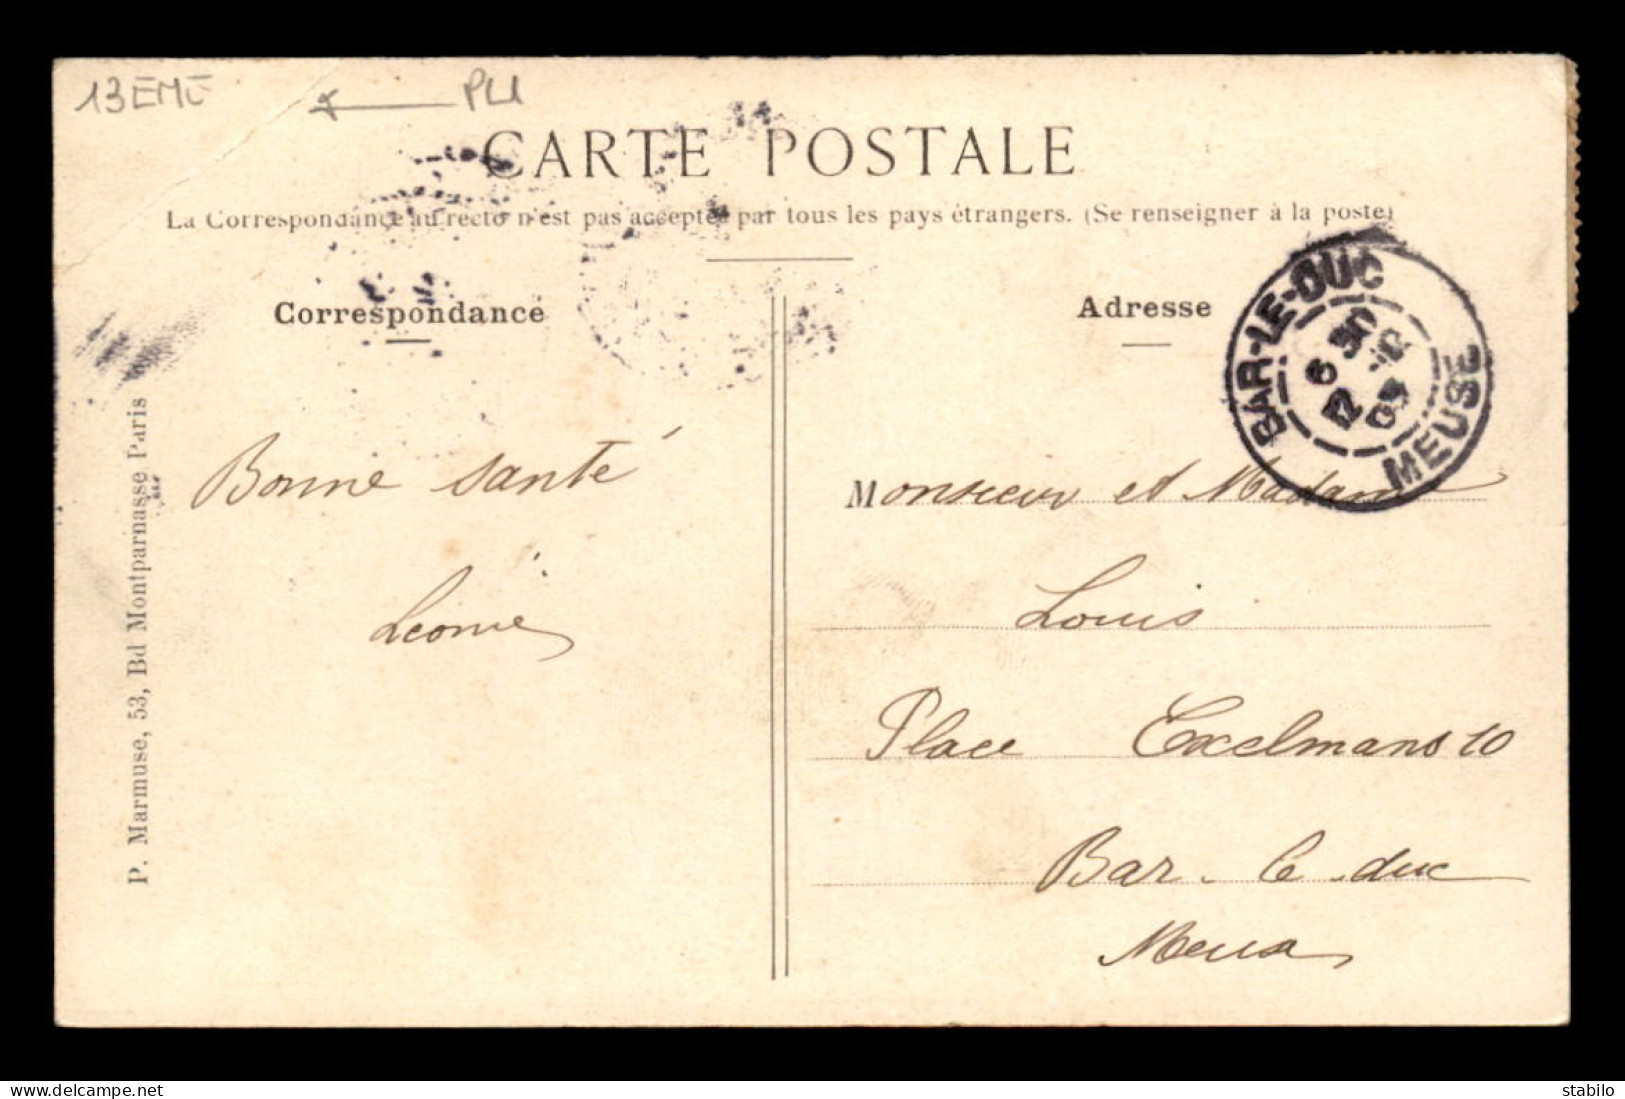 13EME
PLI
CARTE POSTALE
La Correspondance au recto n'est pas acceptée par tous les pays étrangers. (Se renseigner à la poste)
Correspondance
Bonne santé
Léonie
P. Marmuse, 53, Bd Montparnasse Paris
Adresse
BAR-LE-DUC
6 30
12
09
MEUSE
Monsieur et Madame
Louis
Place Exelmans 10
Bar-le-duc
Meuse
stabilo